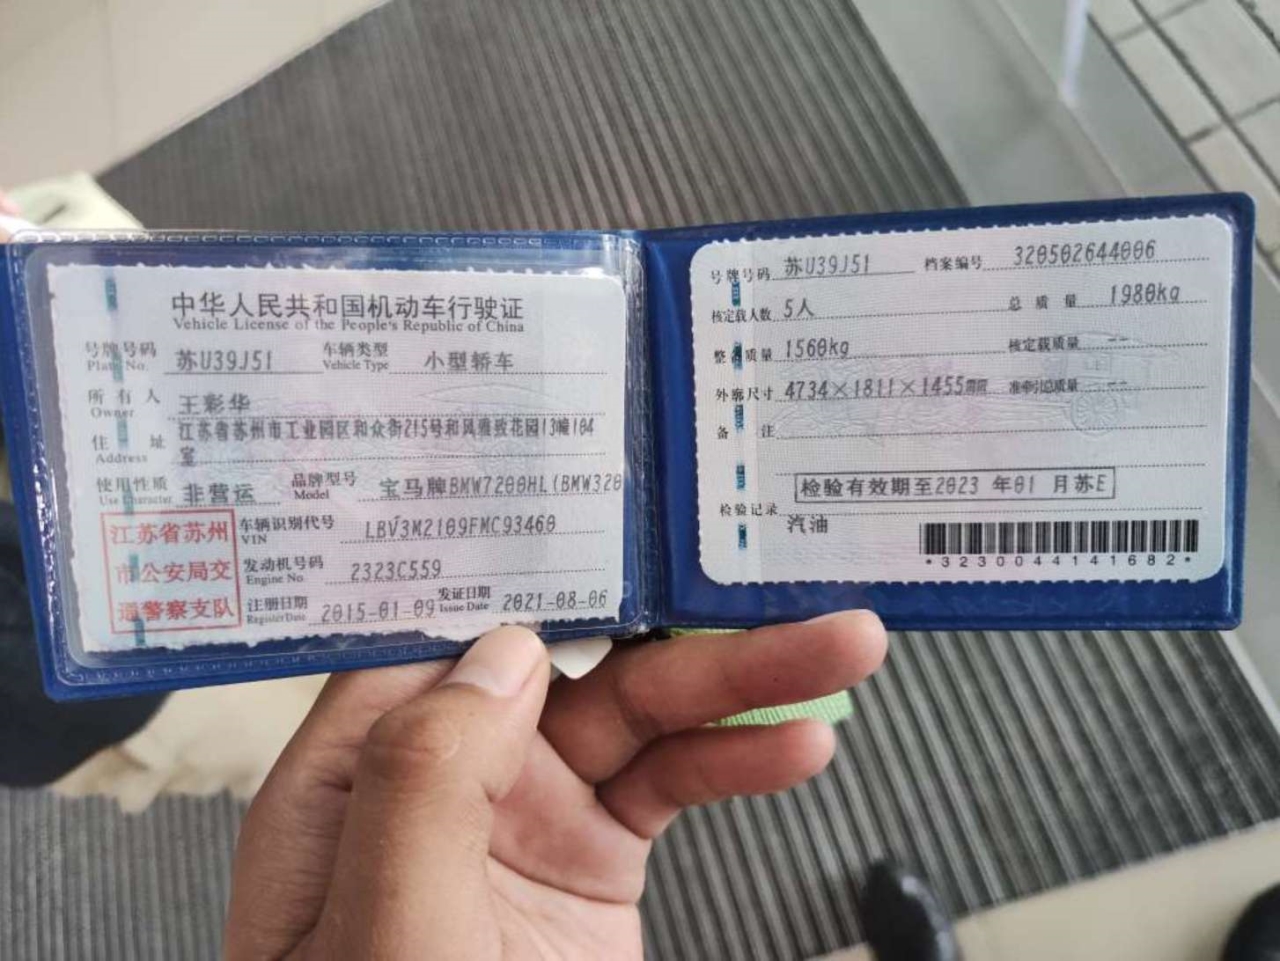 中华人民共和国机动车行驶证
Vehicle License of the People's Republic of China
号牌号码 苏U39J51 车辆类型 小型轿车
Plate No. Vehicle Type
所有人 王彩华
Owner
住址 江苏省苏州市工业园区和众街215号和风雅致花园13幢104
Address 室
使用性质 非营运 品牌型号 宝马牌BMW7200HL(BMW320
Use Character Model
江苏省苏州
市公安局交
通警察支队
车辆识别代号 LBV3M2109FMC93460
VIN
发动机号码 2323C559
Engine No.
注册日期 2015-01-09 发证日期 2021-08-06
Register Date Issue Date
号牌号码 苏U39J51 档案编号 320502644006
核定载人数 5人 总质量 1980kg
整备质量 1560kg 核定载质量 --
外廓尺寸 4734×1811×1455mm 准牵引总质量 --
备注
检验有效期至2023 年01 月苏E
检验记录
汽油
*3230044141682*